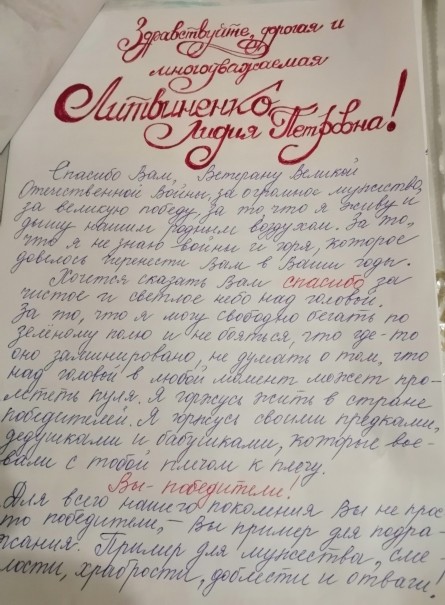 Здравствуйте, дорогая и
многоуважаемая
Литвиненко
Лидия Петровна!
Спасибо Вам, Ветерану Великой
Отечественной Войны, за огромное мужество,
за великую победу. За то, что я живу и
дышу нашим родным воздухом. За то,
что я не знаю войны и горя, которое
довелось перенести Вам в Ваши годы.
Хочется сказать Вам спасибо за
чистое и светлое небо над головой.
За то, что я могу свободно бегать по
зелёному полю и не бояться, что где-то
оно заминировано, не думать о том, что
над головой в любой момент может про-
лететь пуля. Я горжусь жить в стране
победителей. Я горжусь своими предками,
дедушками и бабушками, которые вое-
вали с тобой плечом к плечу.
Вы - победители!
Для всего нашего поколения Вы не прос-
то победители, - Вы пример для подра-
жания. Пример для мужества, сме-
лости, храбрости, доблести и отваги!